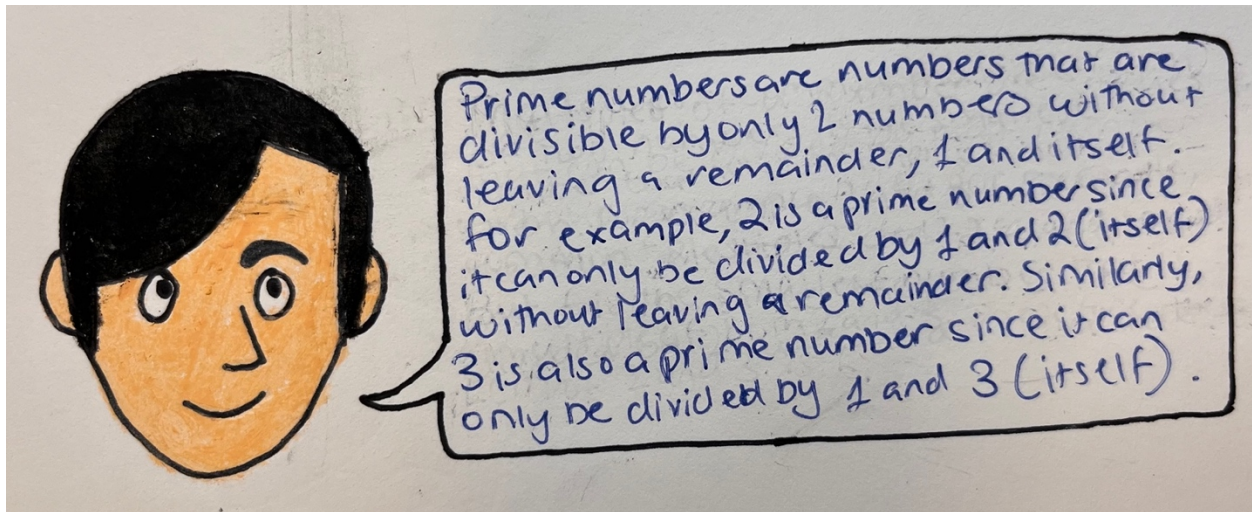 Prime numbers are numbers that are
divisible by only 2 numbers without
leaving a remainder, 1 and itself.
for example, 2 is a prime number since
it can only be divided by 1 and 2 (itself)
without leaving a remainder. Similarly,
3 is also a prime number since it can
only be divided by 1 and 3 (itself).